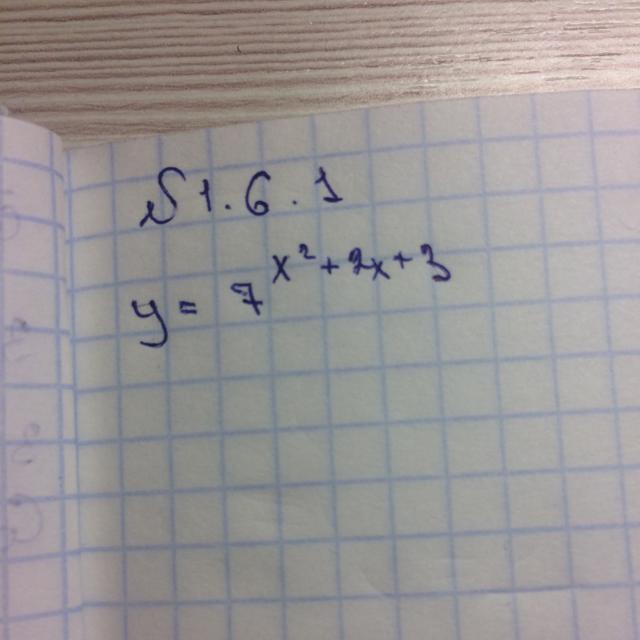 S1.6.1
y = 7^{x²+2x+3}